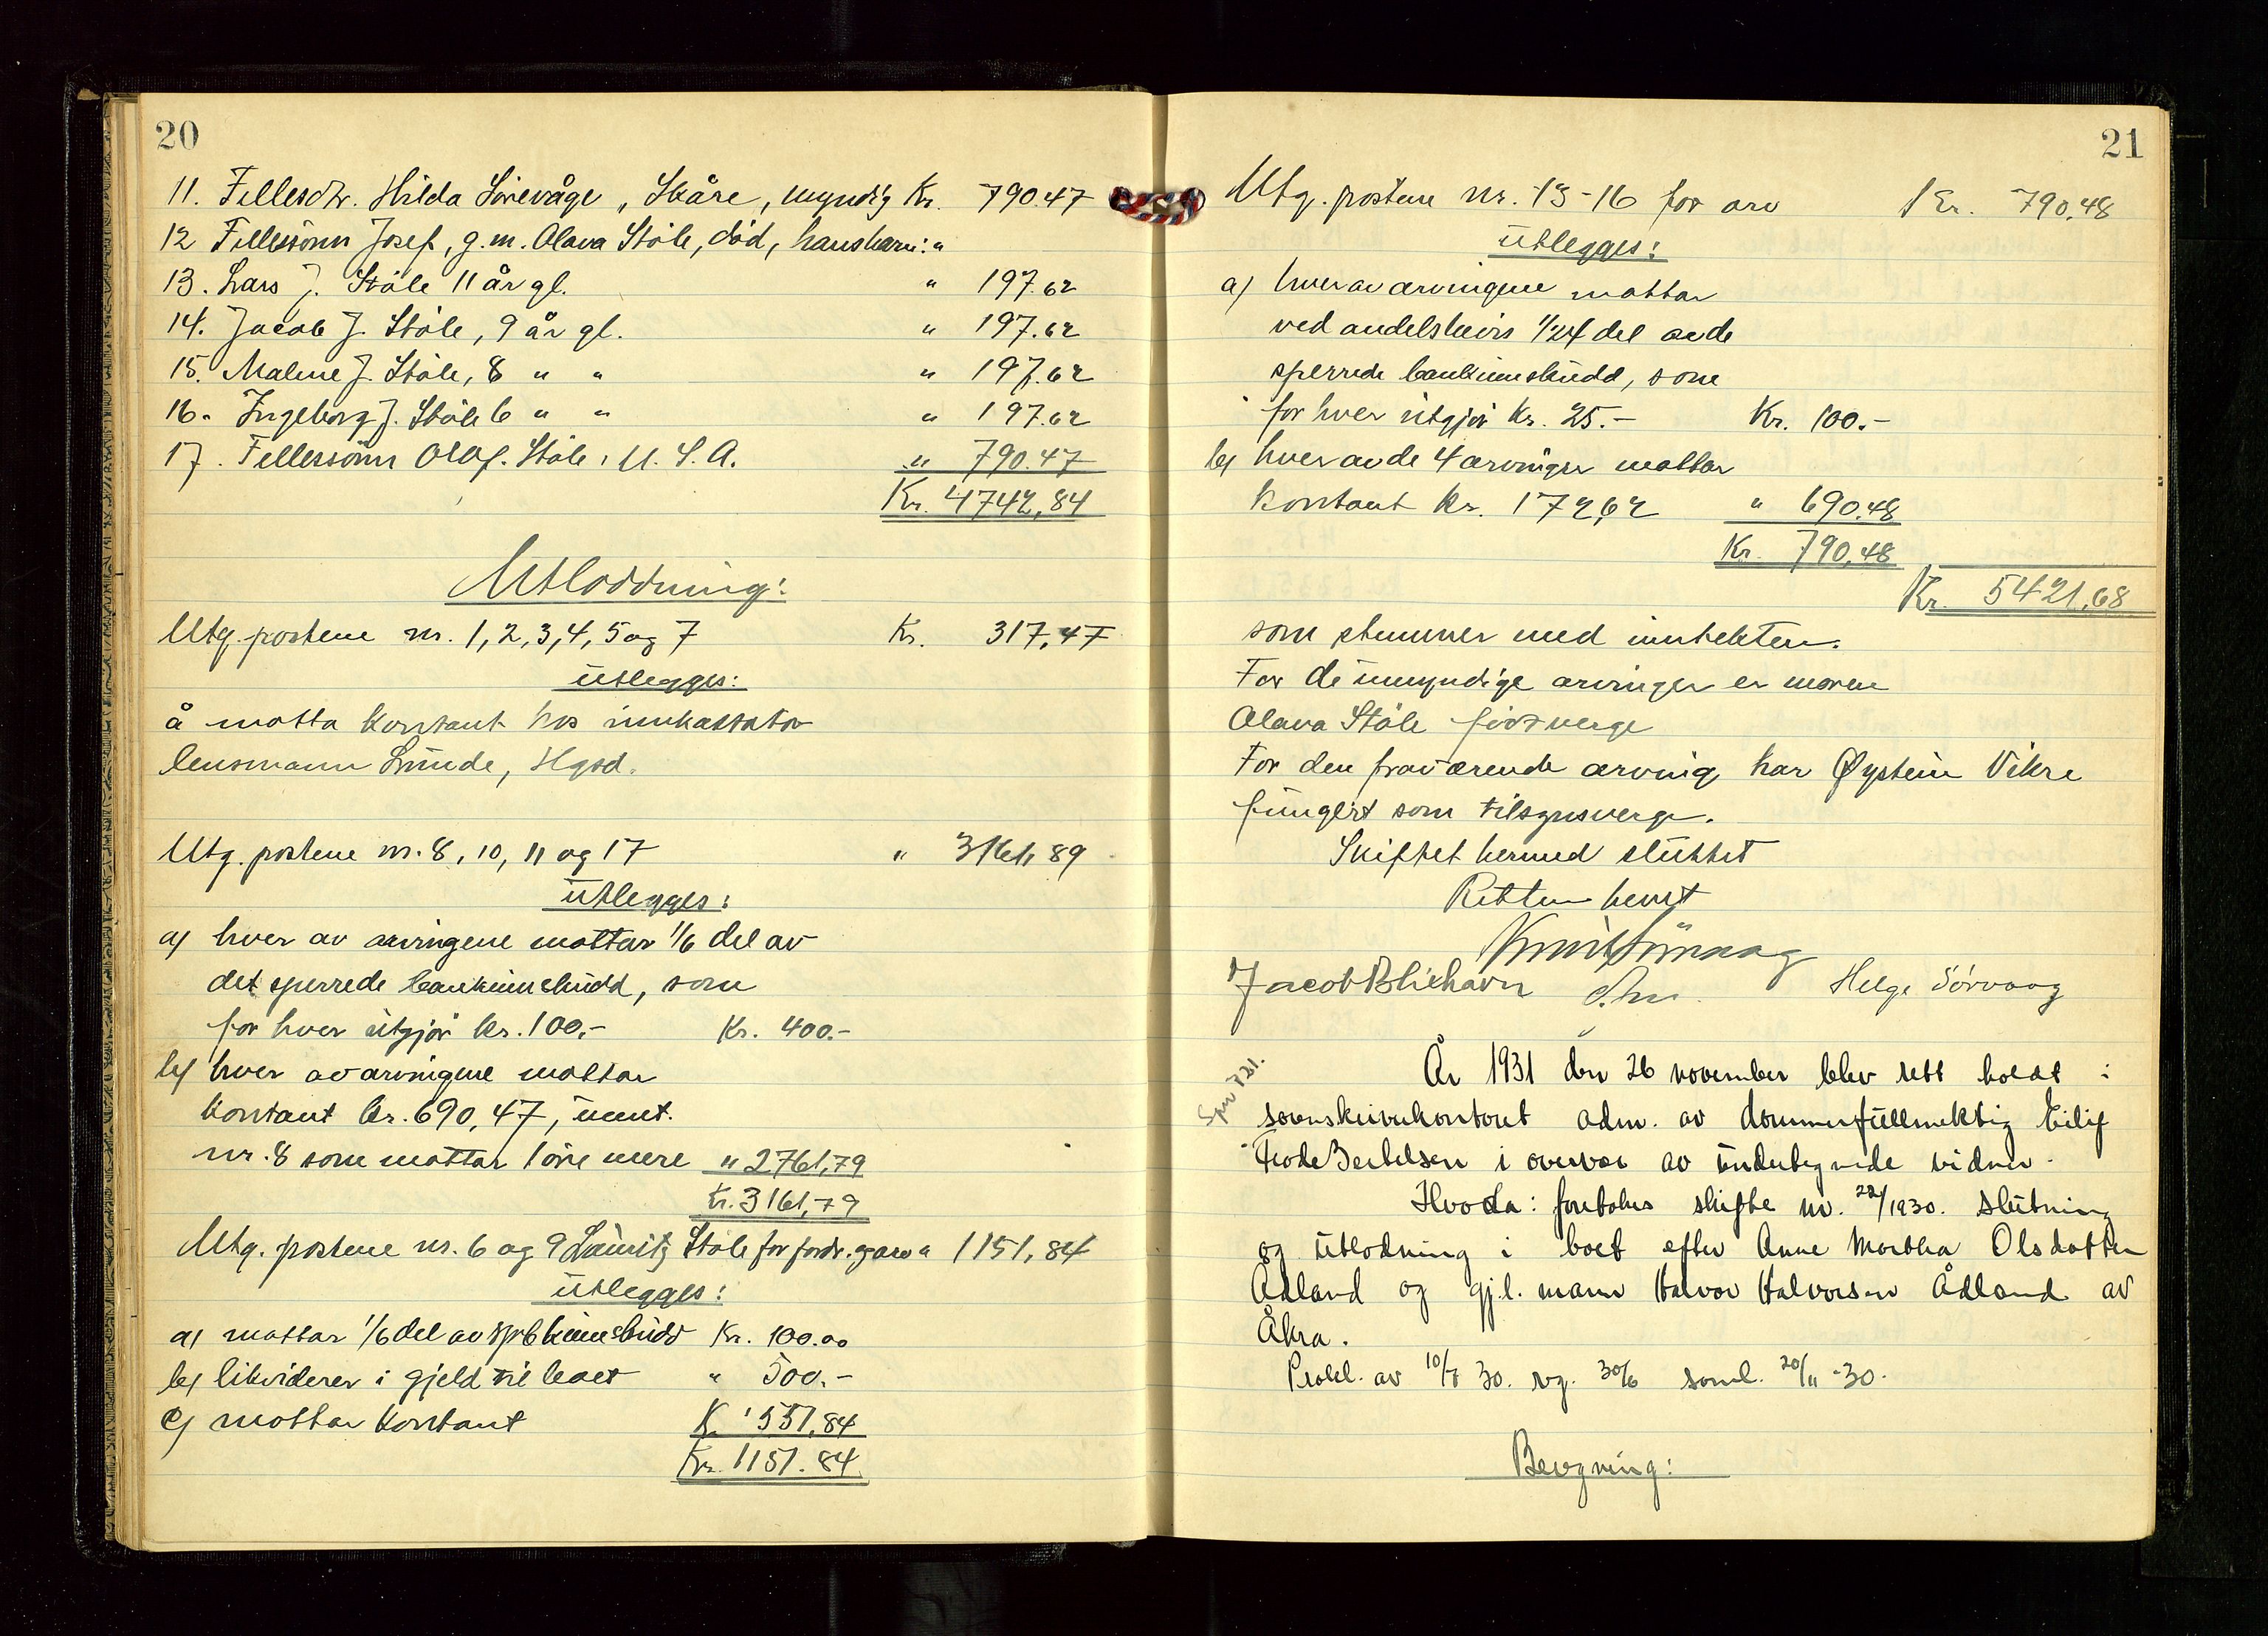 20
11. Fellesdtr. Hilda Sörevåge, Skåre, myndig Kr. 790.47
12 Fellessönn Josef, g.m. Olava Stöle, död, hans barn: "
13. Lars J. Stöle 11 år gl. " 197.62
14. Jacob J. Stöle, 9 år gl. " 197.62
15. Malene J. Stöle, 8 " " " 197.62
16. Ingeborg J. Stöle 6 " " " 197.62
17. Fellessönn Olaf. Stöle, U.S.A. " 790.47
Kr. 4742,84
Utloddning:
Utg. postene nr. 1, 2, 3, 4, 5 og 7 Kr. 317,47
utlegges:
å motta kontant hos innkassator
lensmann Lunde, Hgsd.
Utg. postene nr. 8, 10, 11 og 17 " 3161,89
utlegges:
a) hver av arvingene mottar 1/6 del av
det sperrede bankinnskudd, som
for hver utgjör kr. 100.- Kr. 400.-
b) hver av arvingene mottar
kontant kr. 690,47, unnt.
nr. 8 som mottar 1 öre mere " 2761,79
Kr. 3161,79
Utg. postene nr. 6 og 9 Lauritz Stöle for fordr. og arv " 1151,84
utlegges:
a) mottar 1/6 del av spb. innskudd Kr. 100.00
b) likviderer i gjeld til boet " 500.-
c) mottar kontant K. 551,84
Kr. 1151.84
21
Utg. postene nr. 13-16 for arv Kr. 790,48
utlegges:
a) hver av arvingene mottar
ved andelsbevis 1/24 del av de
sperrede bankinnskudd, som
for hver utgjör Kr. 25.- Kr. 100.-
b) hver av de 4 arvinger mottar
kontant kr. 172,62 " 690.48
Kr. 790,48
Kr. 5421,68
som stemmer med inntekten.
For de umyndige arvinger er moren
Olava Stöle födt verge
For den fraværende arving har Øystein Vikre
fungert som tilsynsverge.
Skiftet hermed sluttet
Retten hevet
Jacob Blikhavn Helge Sörvaag
År 1931 den 26 november blev rett holdt i
sorenskriverkontoret adm. av dommerfullmektig Eilif
Frode Bertelsen i overvær av undertegnede vidner.
Hvoda: foretokes skifte nr. 22/1930. slutning
og utlodning i boet efter Anne Martha Olsdatter
Ådland og gjl. mann Halvor Halvorsen Ådland av
Åkra.
Prokl. av 10/7 30. rg. 30/6 saml. 20/11 -30.
Beregning: